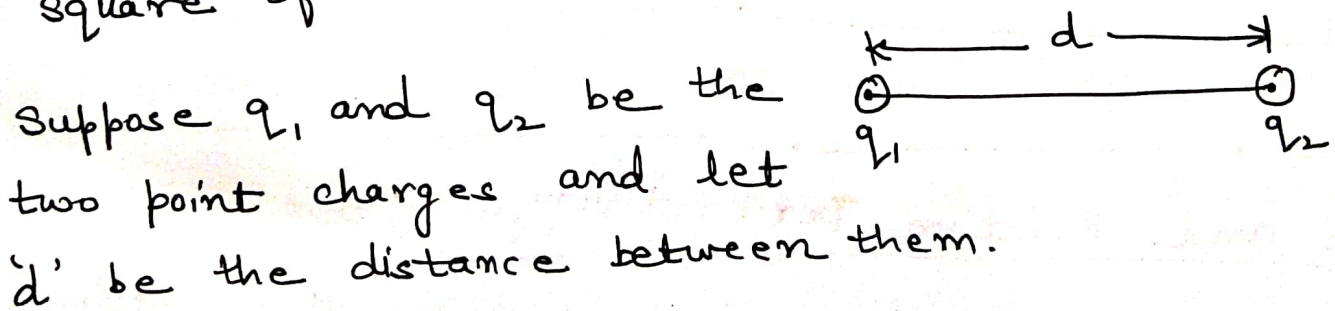 square
d
Suppose q₁ and q₂ be the
q₁ q₂
two point charges and let
'd' be the distance between them.